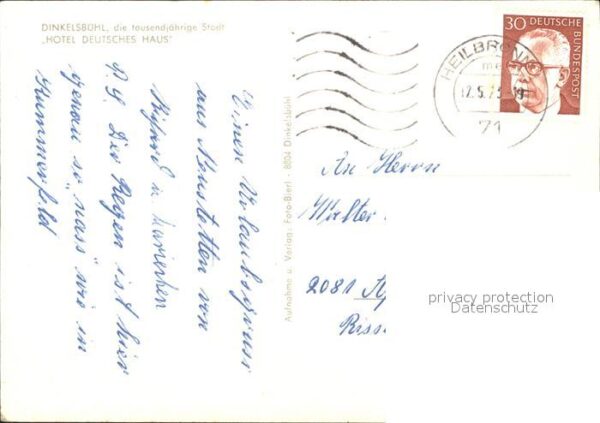 DINKELSBÜHL, die tausendjährige Stadt
„HOTEL DEUTSCHES HAUS"
Einen Urlaubsgruss
aus Neustetten von
u. Mariechen
P. S. Der Regen ist hier
genau so „nass" wie in
Kummerfeld
Aufnahme u. Verlag: Foto-Bierl · 8804 Dinkelsbühl
30 DEUTSCHE
BUNDESPOST
HEILBRONN
71
An Herrn
Walter
2081
Riss
privacy protection
Datenschutz